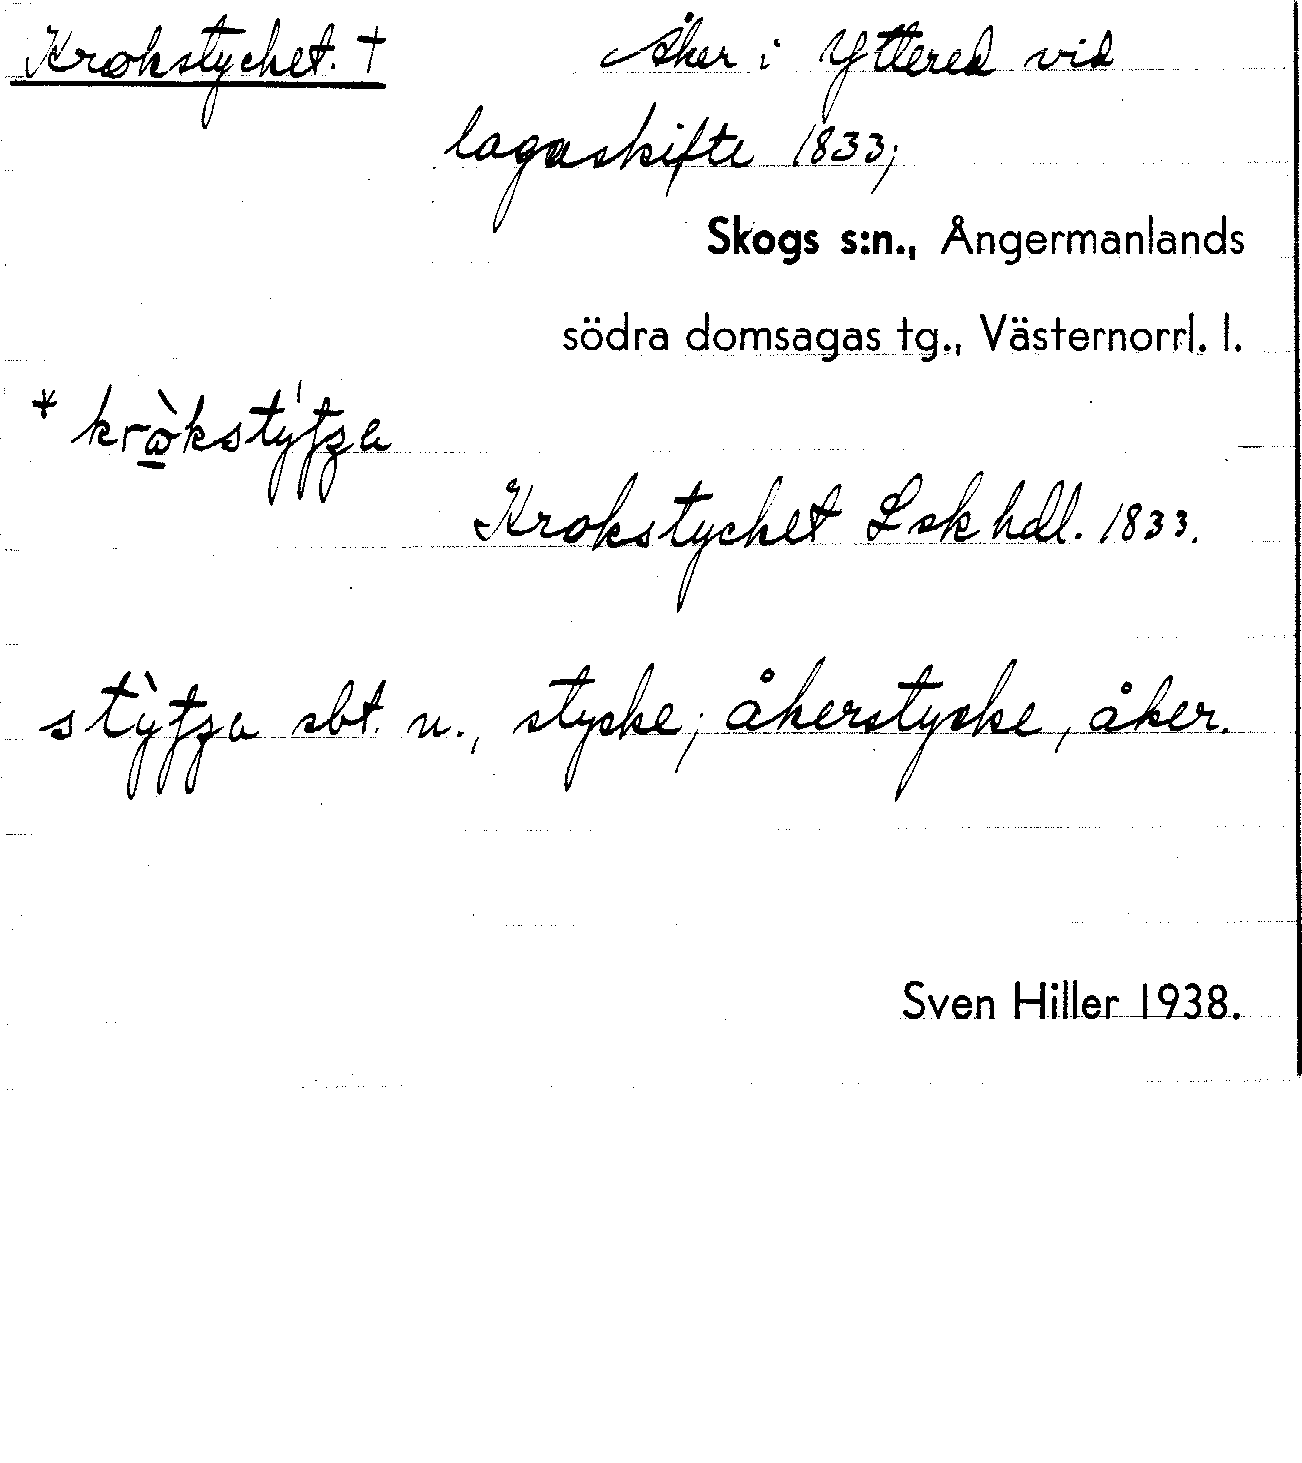 Krokstycket. †
Åker i Yttered vid
lagaskifte 1833;
Skogs s:n., Ångermanlands
södra domsagas tg., Västernorrl. l.
Krokstycket Lsk hdl. 1833.
sbt. n., stycke; åkerstycke, åker.
Sven Hiller 1938.